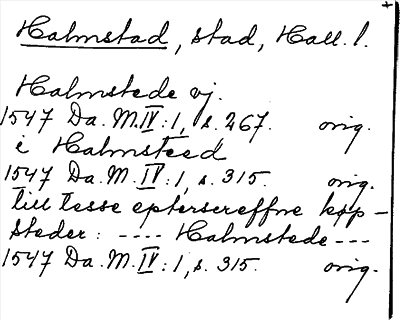 Halmstad, stad, Hall. l.
Halmstede vj.
1547 Da. M. IV:1, s. 267. orig.
i Halmsteed
1547 Da. M. IV:1, s. 315. orig.
till tesse eptersereffne køp-
steder: ---- Halmstede ---
1547 Da. M. IV:1, s. 315. orig.